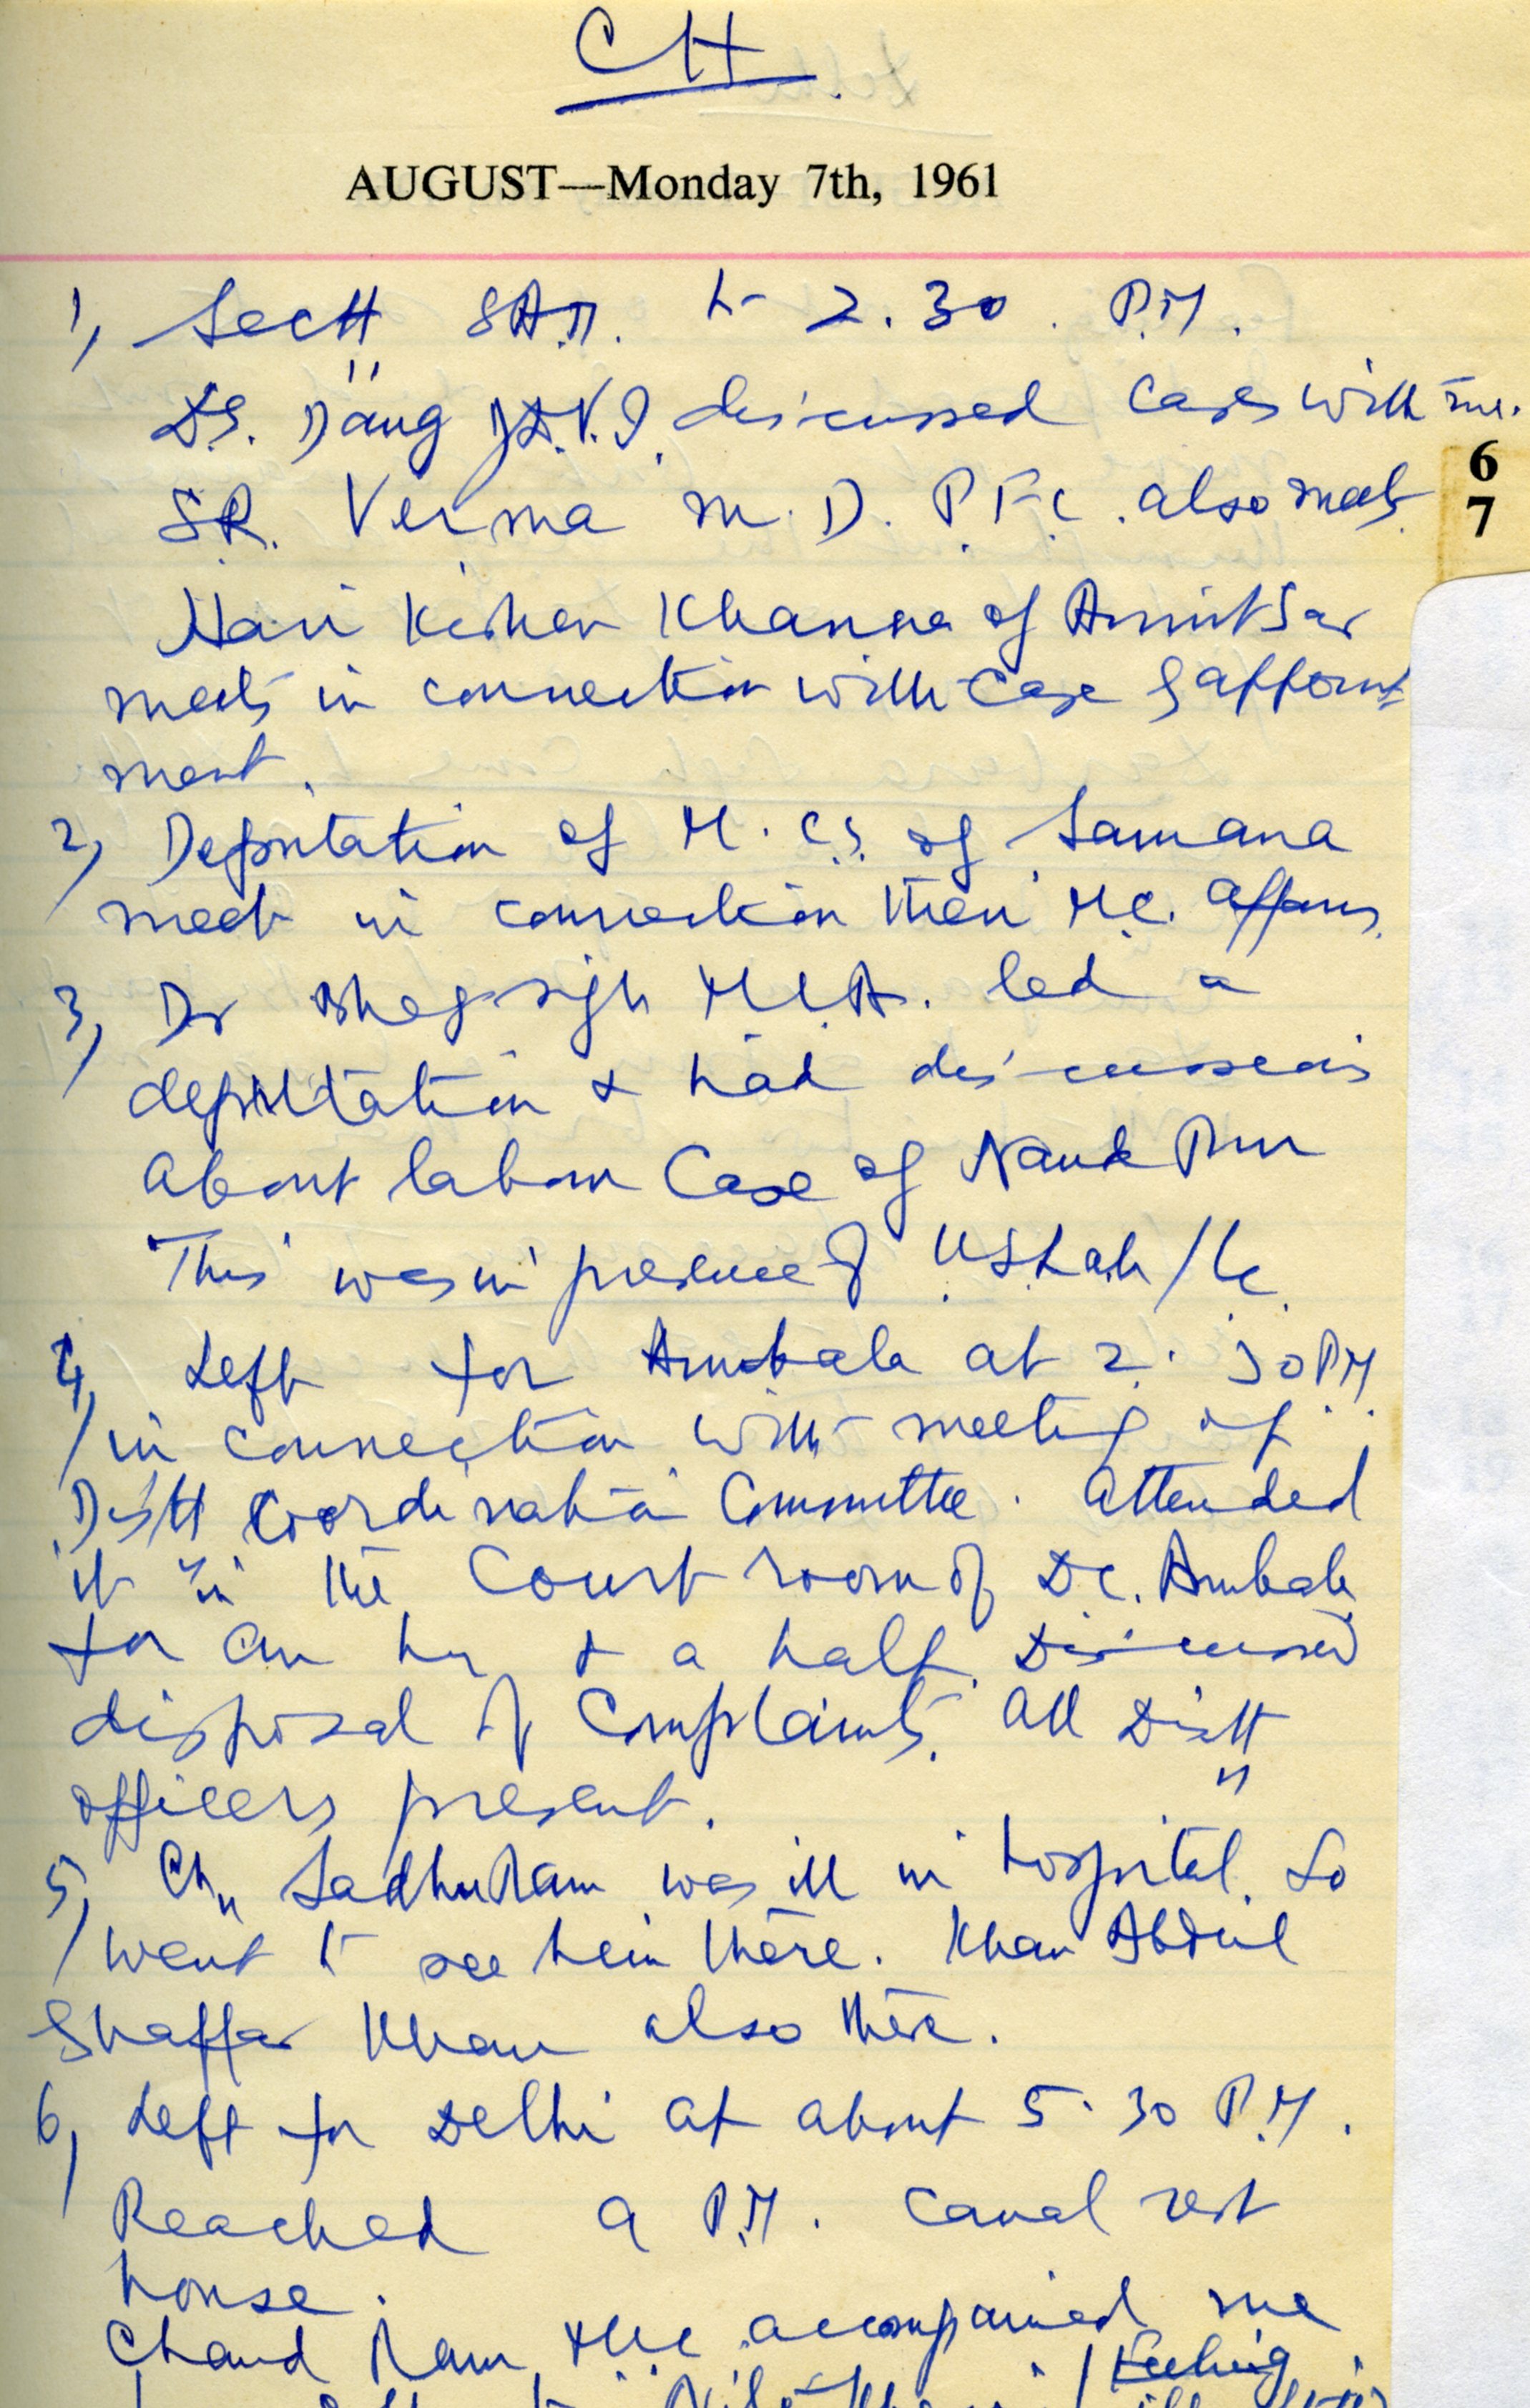 CH
AUGUST—Monday 7th, 1961
1, Sectt 8 A.M. to 2.30. P.M.
discussed cases with me.
6
S.R. Verma M.D. P.F.C. also meets
7
Hari Kishen Khanna of Amritsar
meets in connection with case of appoint-
ment.
2, Deputation of M.C.s. of Samana
meet in connection their M.C. affairs.
3, Dr Bhag Singh M.L.A. led a
deputation & had discussions
about labour case of
This was in presence of
4, Left for Ambala at 2.30 P.M.
in connection with meeting of
Distt Coordination Committee. Attended
it in the Court room of D.C. Ambala
for an hr & a half. Discussed
disposal of Complaints. All Distt
officers present.
5, Ch. Sadhu Ram was ill in hospital. So
went to see him there. Khan Abdul
Ghaffar Khan also there.
6, Left for Delhi at about 5.30 P.M.
Reached 9 P.M. Canal rest
house.
Chand Ram accompanied me